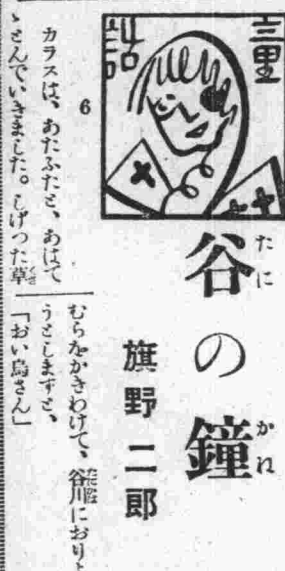 谷の鐘
たに かね
旗野二郎
6
カラスは、あたふたと、あはて
ゝとんでいきました。しげつた草
むらをかきわけて、谷川におりよ
うとしますと、
「おい烏さん」